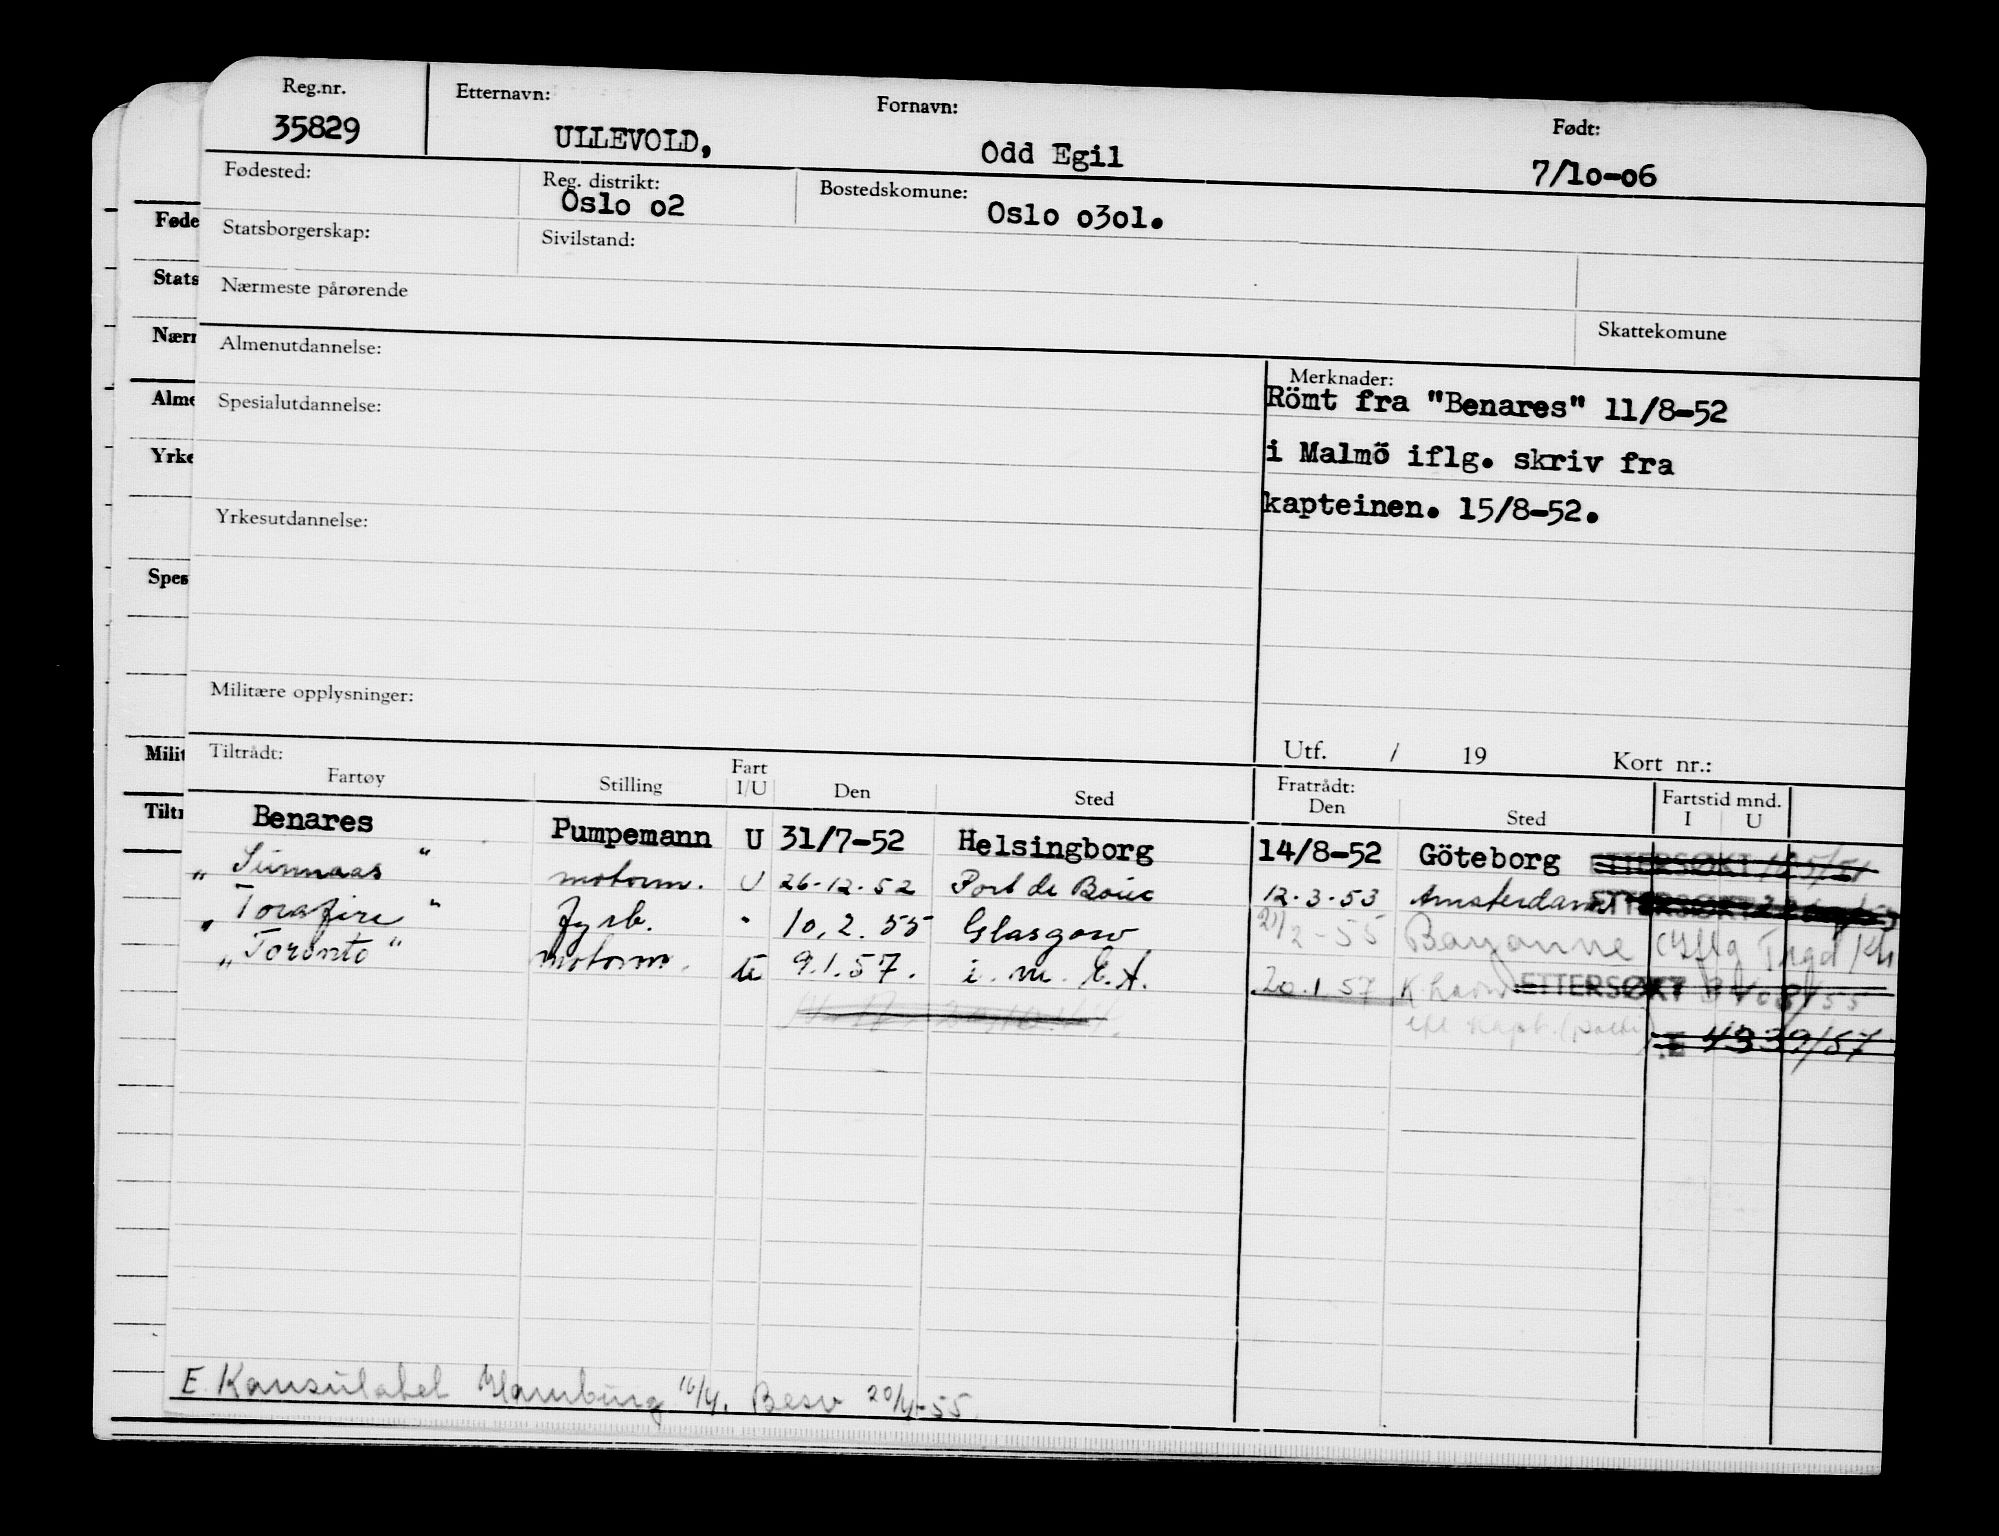 Reg.nr. Etternavn: Fornavn: Født:
35829 ULLEVOLD, Odd Egil 7/10-06
Fødested: Reg. distrikt: Bostedskomune:
Oslo o2 Oslo o3o1.
Statsborgerskap: Sivilstand:
Nærmeste pårørende
Skattekomune
Almenutdannelse:
Merknader:
Römt fra "Benares" 11/8-52
i Malmö iflg. skriv fra
kapteinen. 15/8-52.
Spesialutdannelse:
Yrkesutdannelse:
Militære opplysninger:
Utf. / 19 Kort nr.:
Tiltrådt: Fratrådt: Fartstid mnd.
Fartøy Stilling Fart I/U Den Sted Den Sted I U
Benares Pumpemann U 31/7-52 Helsingborg 14/8-52 Göteborg ETTERSØKT
" Sunnaas " motorm. U 26-12-52 Port de Bouc 12-3-53 Amsterdam ETTERSØKT
" Torafire " fyrb. " 10.2.55 Glasgow 21/2-55 Bayonne
" Toronto " motorm. U 9.1.57. i.m. E.A. 20.1.57 ETTERSØKT
E 4339/57
E. Konsulatet Hamburg 16/4. Besv 20/4-55
Føde
Stats
Nærr
Alme
Yrke
Spes
Milit
Tiltr